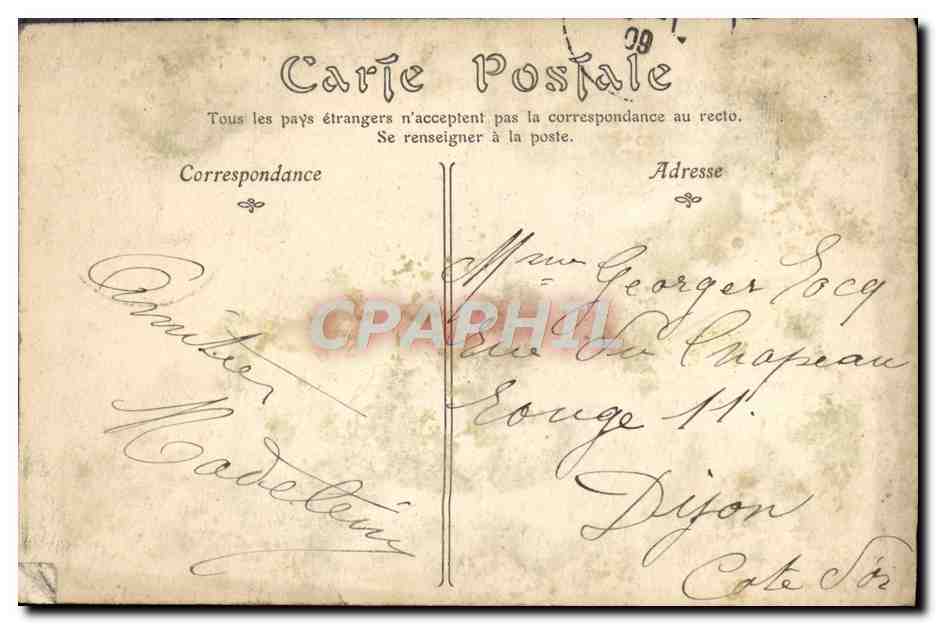 09
Carte Postale
Tous les pays étrangers n'acceptent pas la correspondance au recto.
Se renseigner à la poste.
Correspondance
Amitiés
Madeleine
Adresse
Mme Georges Tocq
Rue du Chapeau
Rouge 11.
Dijon
Cote d'or
CPAPHIL